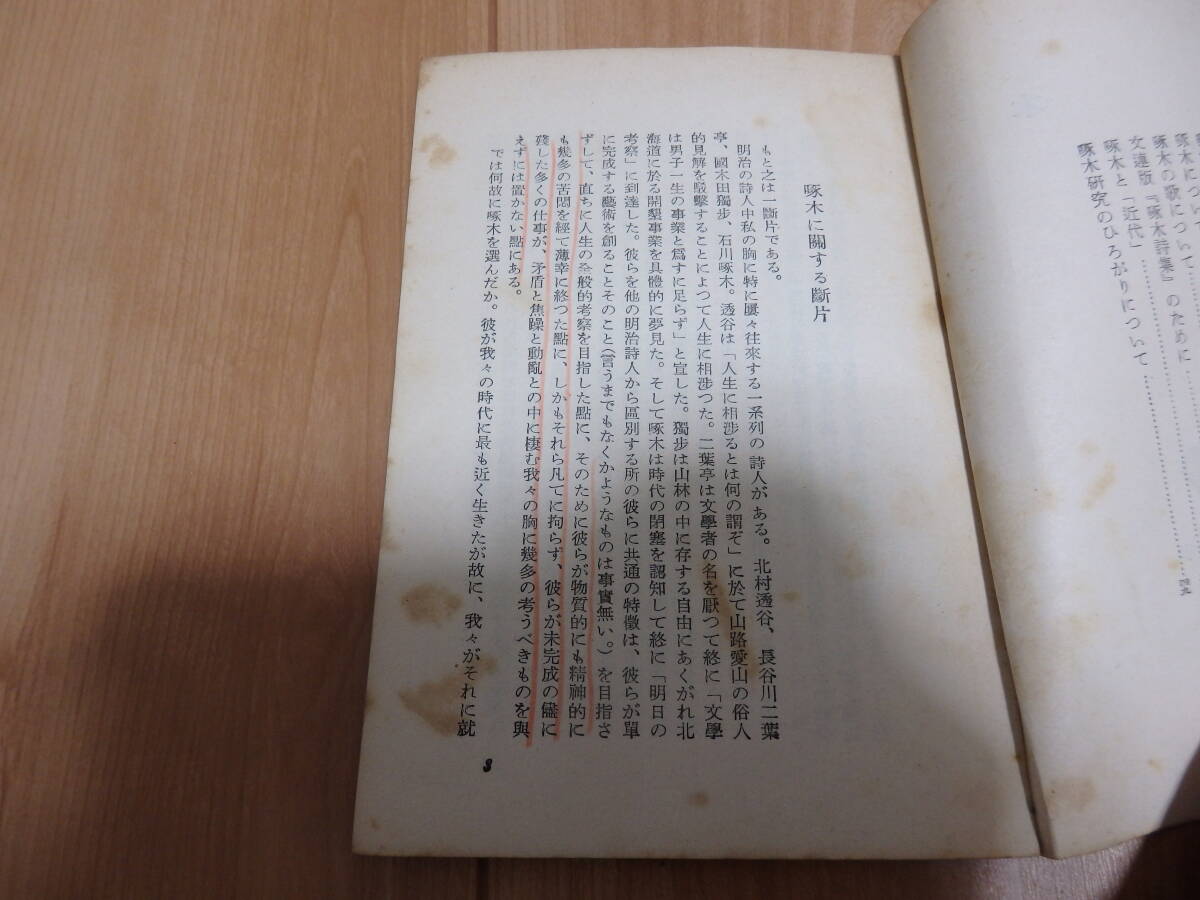 啄木について
啄木の歌について
文連版『啄木詩集』のために
啄木と「近代」
啄木研究のひろがりについて
啄木に關する斷片
もと之は一斷片である。
明治の詩人中私の胸に特に屢々往來する一系列の詩人がある。北村透谷、長谷川二葉
亭、國木田獨步、石川啄木。透谷は「人生に相涉るとは何の謂ぞ」に於て山路愛山の俗人
的見解を駁擊することによつて人生に相涉つた。二葉亭は文學者の名を厭つて終に「文學
は男子一生の事業と爲すに足らず」と宣した。獨步は山林の中に存する自由にあくがれ北
海道に於る開墾事業を具體的に夢見た。そして啄木は時代の閉塞を認知して終に「明日の
考察」に到達した。彼らを他の明治詩人から區別する所の彼らに共通の特徵は、彼らが單
に完成する藝術を創ることとそのこと（言うまでもなくかようなものは事實無い。）を目指さ
ずして、直ちに人生の全般的考察を目指した點に、そのために彼らが物質的にも精神的に
も幾多の苦悶を經て薄幸に終つた點に、しかもそれら凡てに拘らず、彼らが未完成の儘に
殘した多くの仕事が、矛盾と焦躁と動亂との中に棲む我々の胸に幾多の考うべきものを與
えずには置かない點にある。
では何故に啄木を選んだか。彼が我々の時代に最も近く生きたが故に、我々がそれに就
3